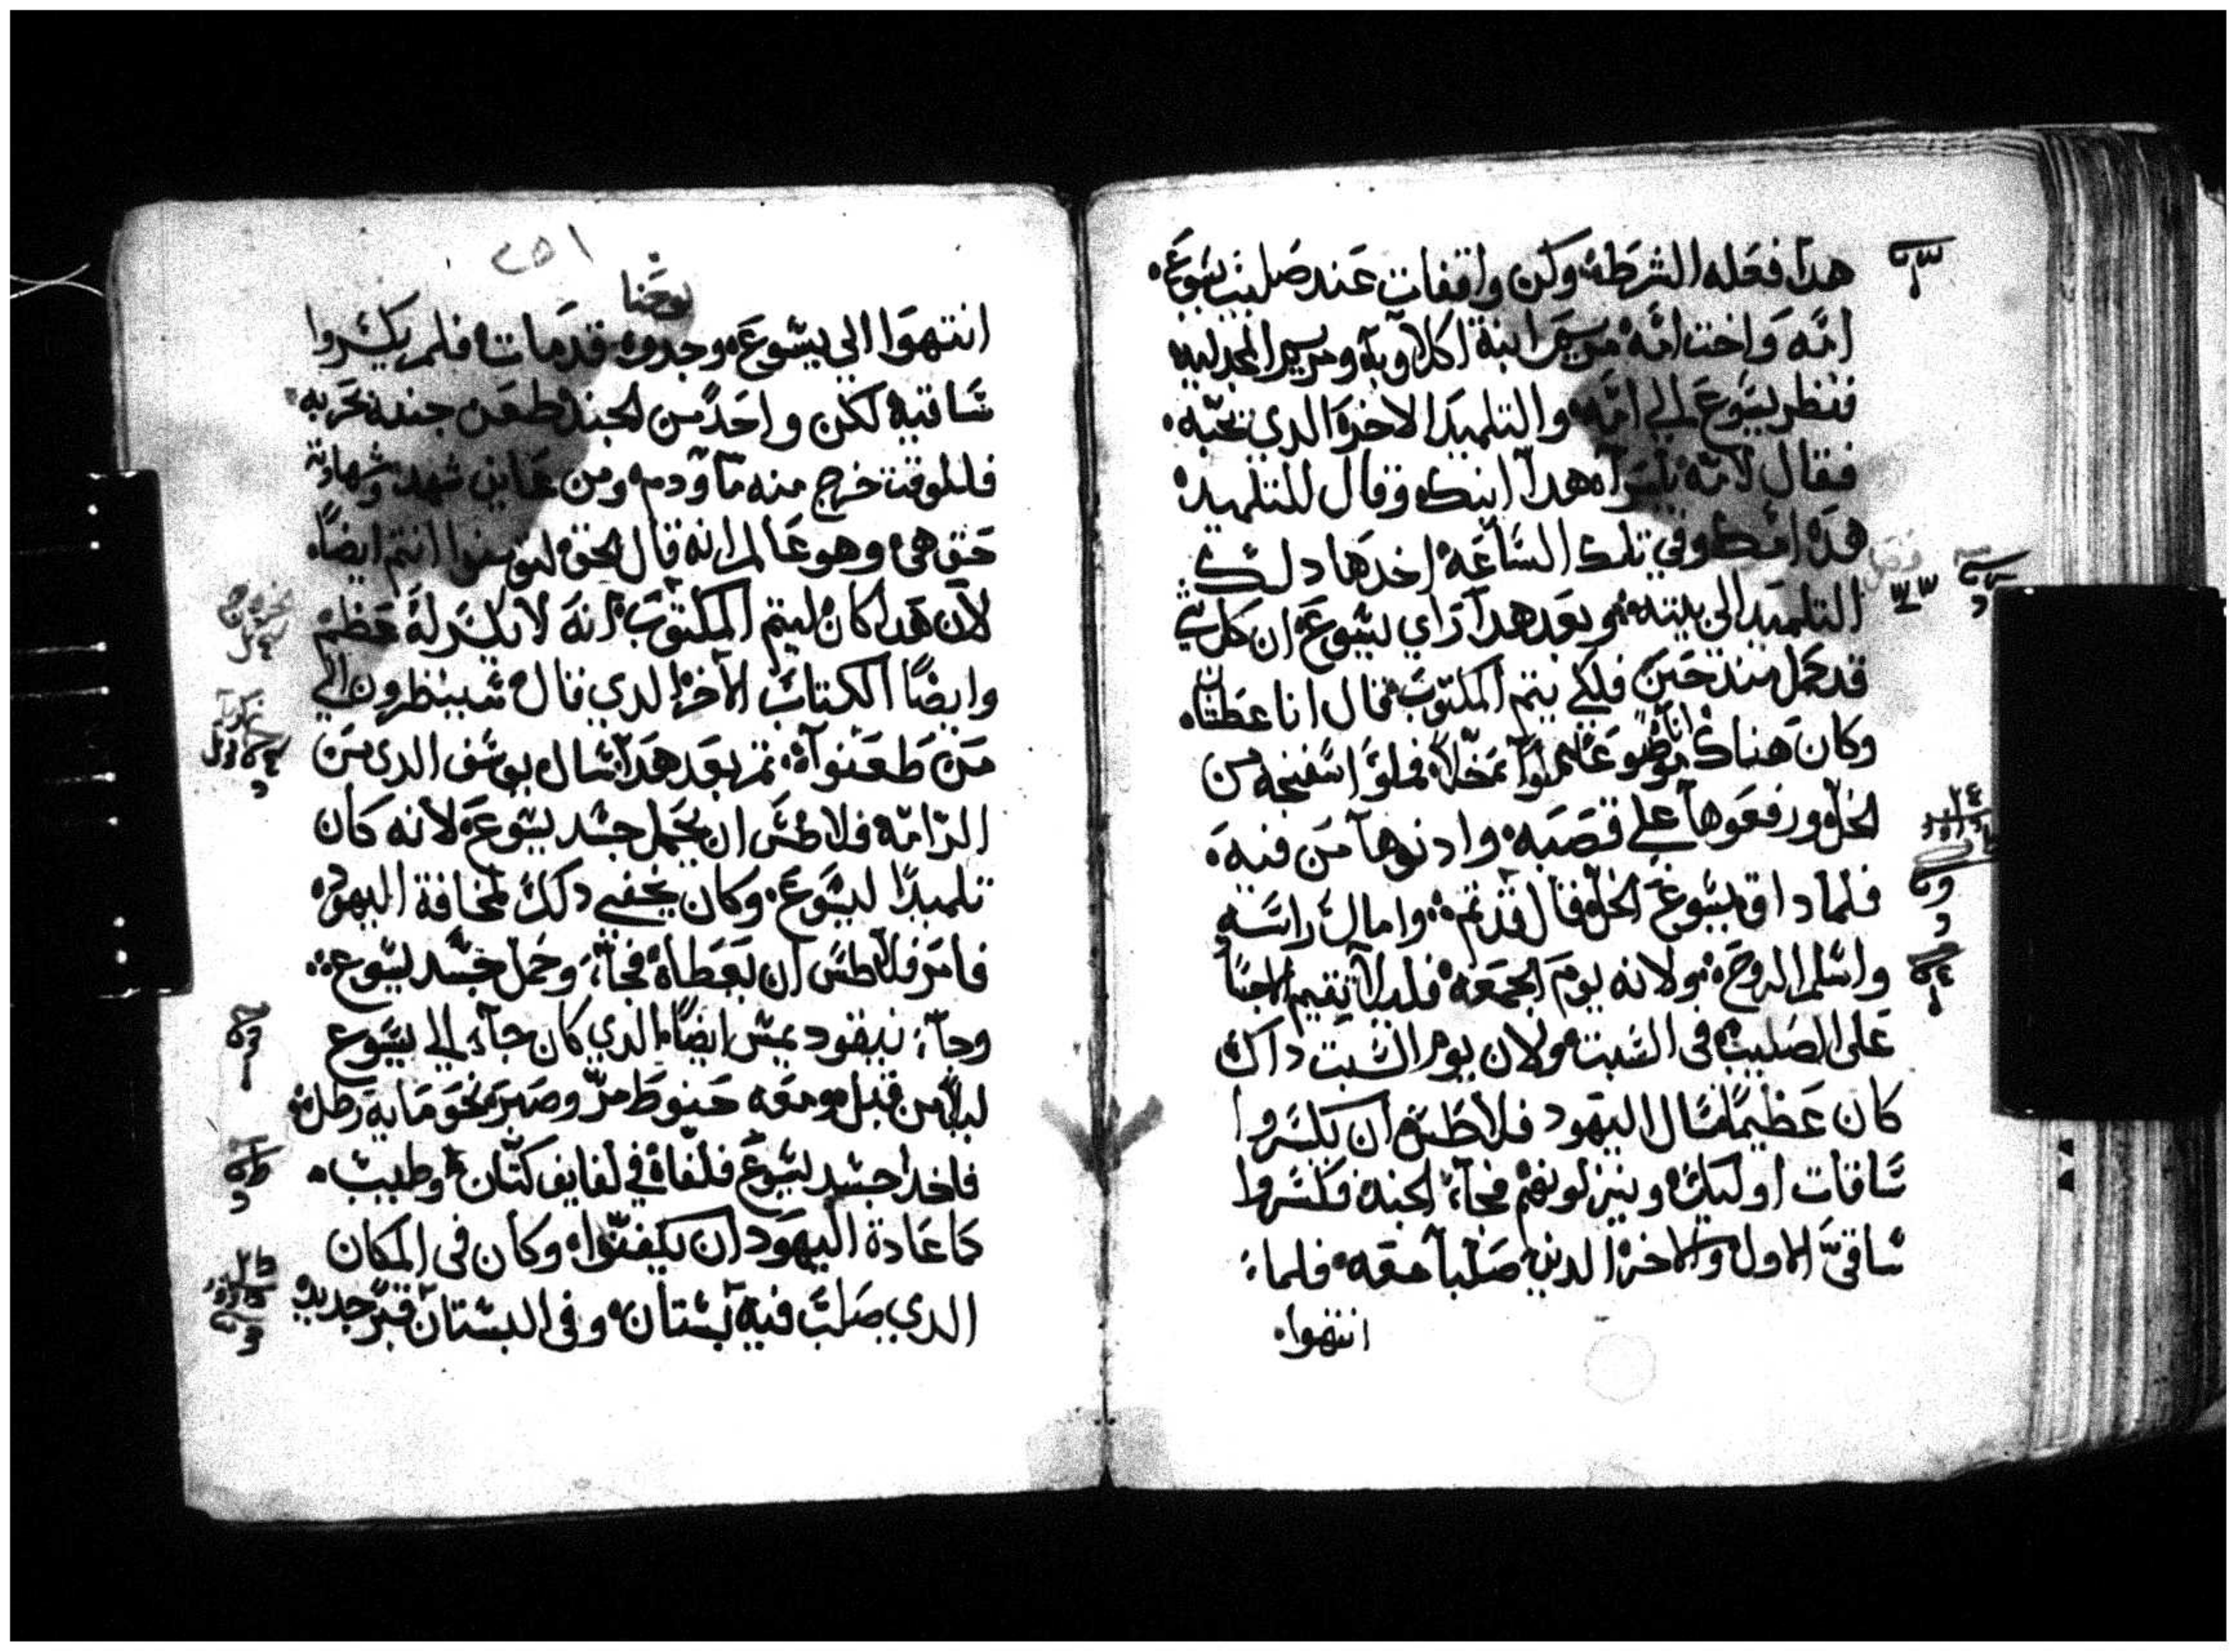 هدا فعله الشرطه وكن واقفات عند صليب يسوع
امه واخت امه مريم ابنة اكلاوبا ومريم المجدليه
فنظر يسوع الي امه والتلميد الاخر الدي يحبه
فقال لامه يامراه هدا ابنك وقال للتلميد
هده امك وفي تلك الساعه اخدها دلك
التلميد الي بيته وبعد هدا راي يسوع ان كل شي
قد كمل مند حين فلكي يتم المكتوب قال انا عطشان
وكان هناك انا موضوعا مملوا خلا فملوا اسفنجه من
الخل ورفعوها علي قصبه وادنوها من فيه
فلما داق يسوع الخل قال قد تم وامال راسه
واسلم الروح ولانه يوم الجمعه فلىلا تقيم الاجسا
على الصليب في السبت ولان يوم السبت داك
كان عظيما سال اليهود فلاطس ان يكسروا
ساقات اوليك وينزلونهم فجا الجند فكسروا
ساقي الاول والاخر الدين صلبا معه فلما
انتهوا
٢٥١
يوحنا
انتهوا الي يسوع وجدوه قد مات فلم يكسروا
ساقيه لكن واحد من الجند طعن جنبه بحربه
فللوقت خرج منه ما ودم ومن عاين شهد وشهادته
حق هي وهو عالم انه قال الحق لتومنوا انتم ايضا
لان هدا كان ليتم المكتوب انه لا يكسر له عظم
وايضا الكتاب الاخر الدي قال سينظرون الي
من طعنوا ثم بعد هدا سال يوسف الدي من
الرامه فلاطس ان يحمل جسد يسوع لانه كان
تلميدا ليسوع وكان يخفي دلك لمخافة اليهود
فامر فلاطس ان يعطاه فجا وحمل جسد يسوع
وجا نيقوديمس ايضا الدي كان جا الي يسوع
ليلا من قبل ومعه حنوط مر وصبر نحو مايه رطل
فاخدا جسد يسوع فلفاه في لفايف كتان وطيب
كما عادة اليهود ان يكفنوا وكان في المكان
الدي صلب فيه بستان وفي البستان قبر جديد